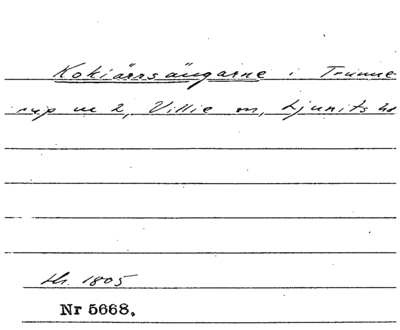 Kokiärrsängarne i Trunne-
rup nr 2, Villie sn, Ljunits hd
hr. 1805
Nr 5668.